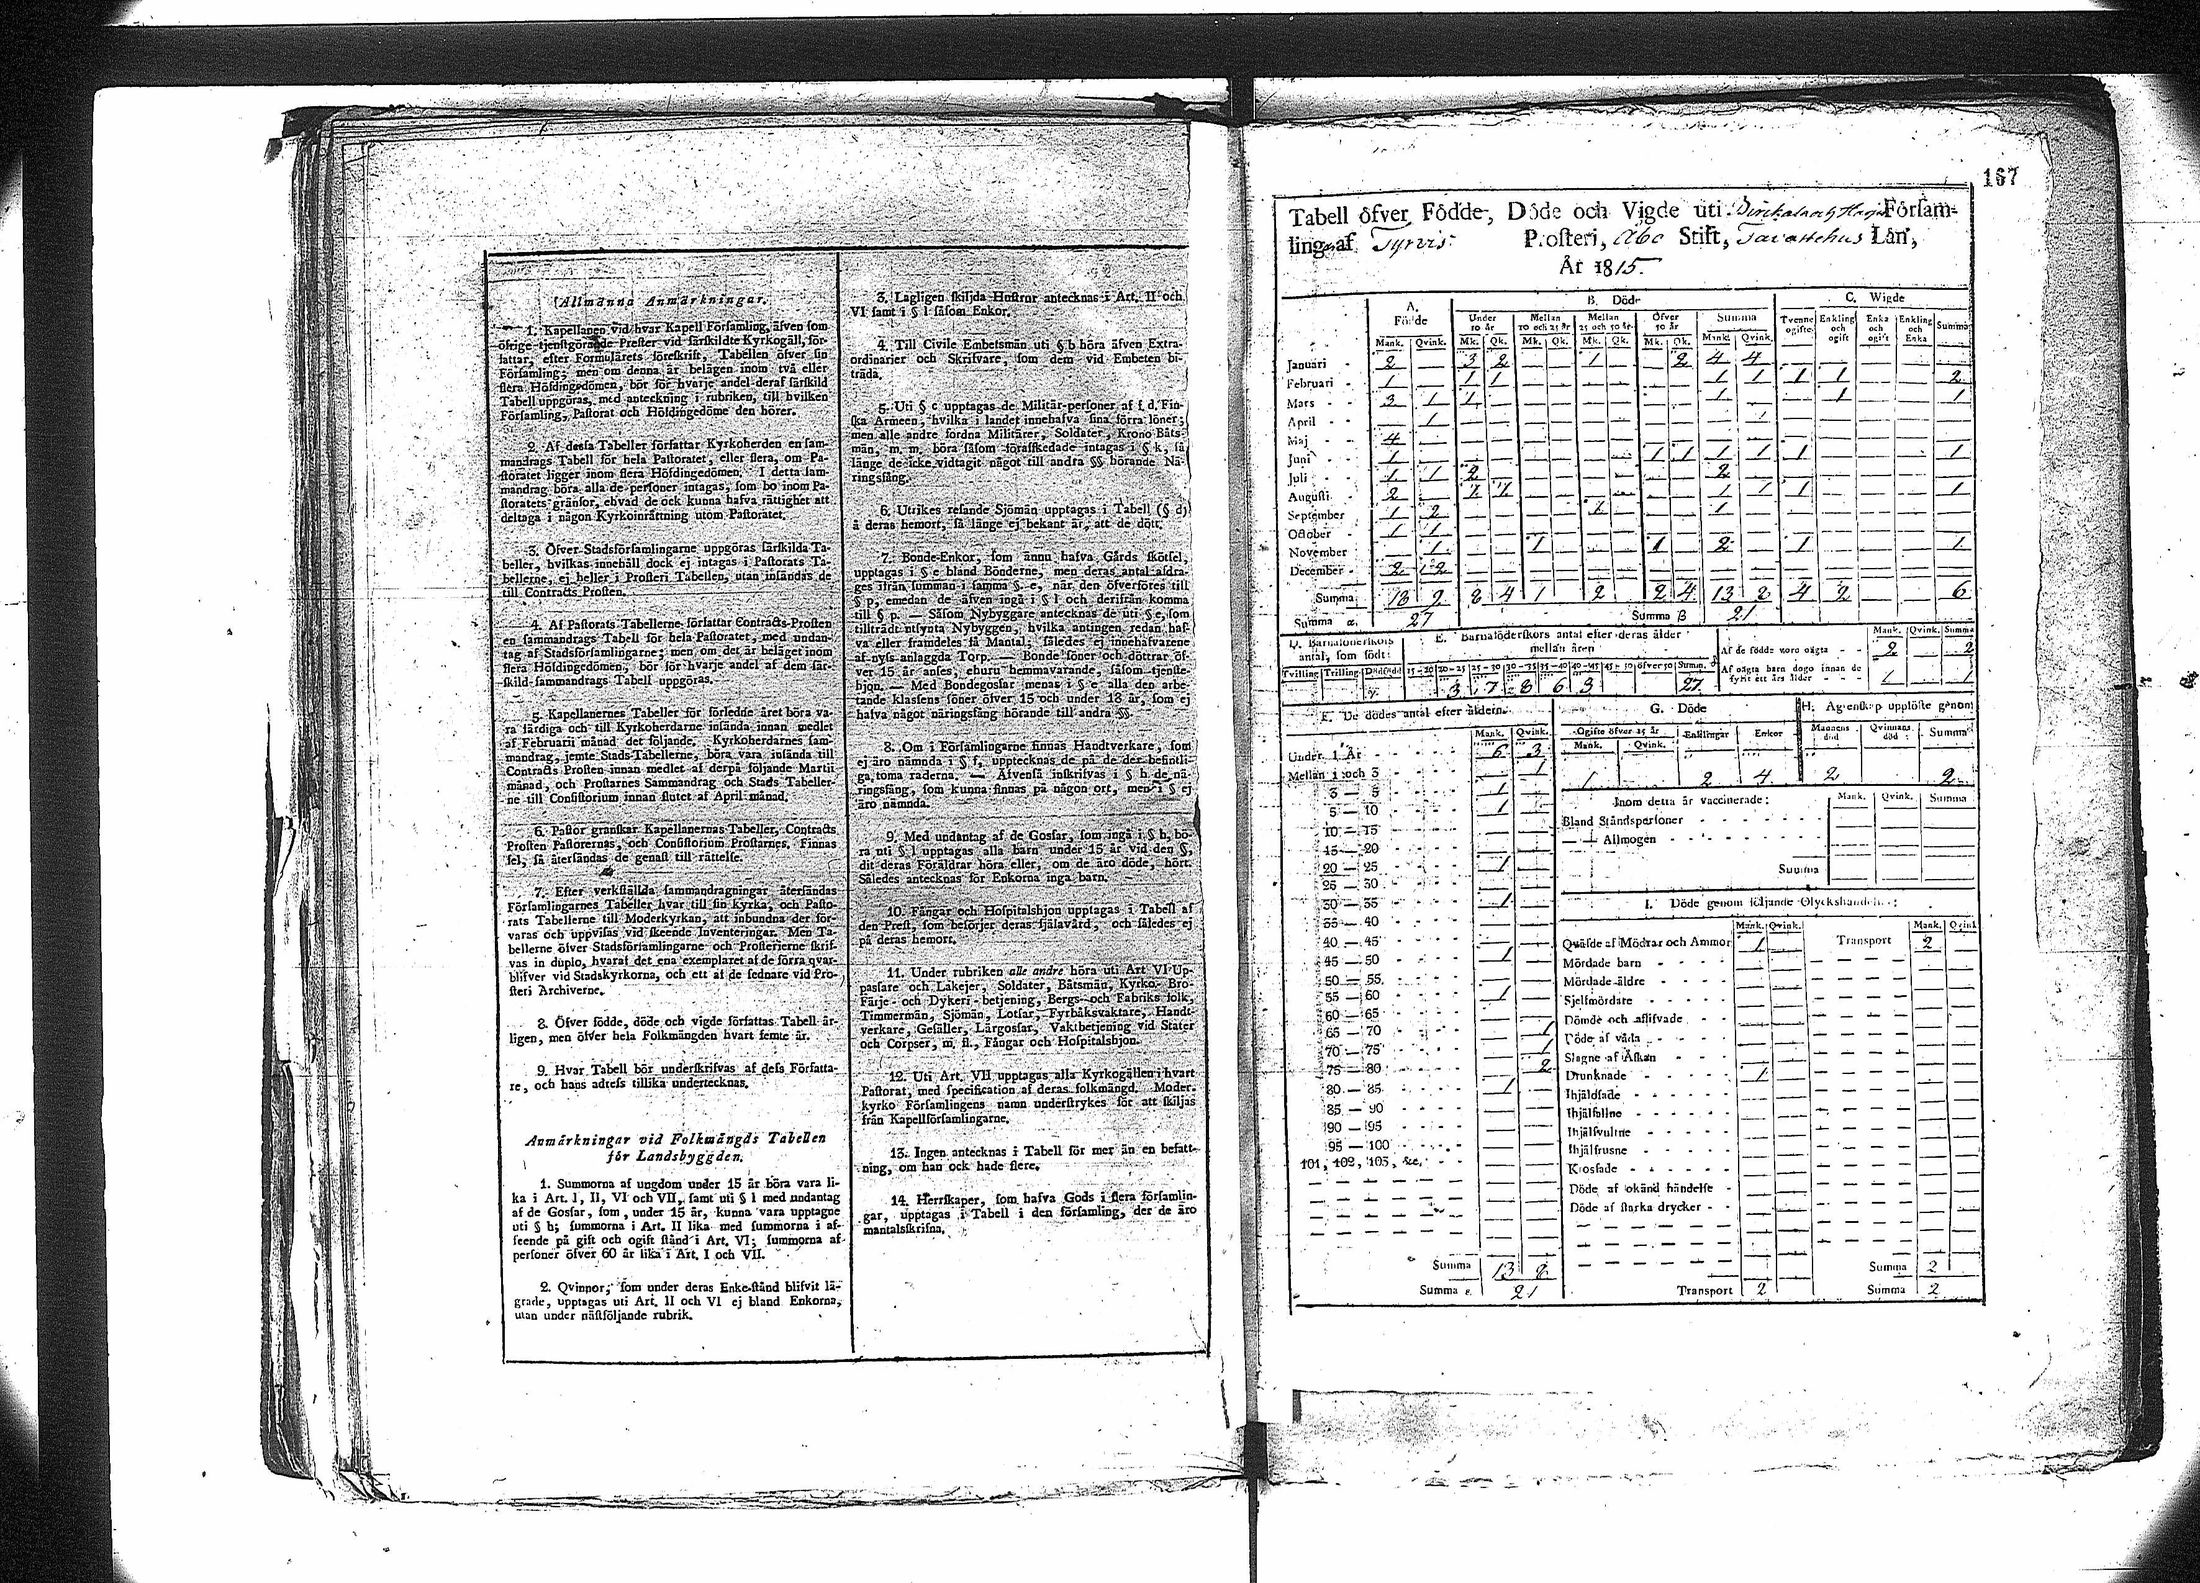 Allmänna Anmärkningar.
1. Kapellanen vid hvar Kapell Församling, äfven som
öfrige tjenstgörande Prester vid särskildte Kyrkogäll, för-
fattar, efter Formulärets föreskrift, Tabellen öfver sin
Församling; men om denna är belägen inom två eller
flera Höfdingedömen, bör för hvarje andel deraf särskild
Tabell uppgöras, med anteckning i rubriken, till hvilken
Församling, Pastorat och Höfdingedöme den hörer.
2. Af dessa Tabeller författar Kyrkoherden en sam-
mandrags Tabell för hela Pastoratet, eller flera, om Pa-
storatet ligger inom flera Höfdingedömen. I detta sam-
mandrag böra alla de personer intagas, som bo inom Pa-
storatets gränsor, ehvad de ock kunna hafva rättighet att
deltaga i någon Kyrkoinrättning utom Pastoratet.
3. Öfver Stadsförsamlingarne uppgöras särskilda Ta-
beller, hvilkas innehåll dock ej intagas i Pastorats Ta-
bellerne, ej heller i Prosteri Tabellen, utan insändas de
till Contracts Prosten.
4. Af Pastorats Tabellerne författar Contracts-Prosten
en sammandrags Tabell för hela Pastoratet, med undan-
tag af Stadsförsamlingarne; men om det är beläget inom
flera Höfdingedömen, bör för hvarje andel af dem sär-
skild sammandrags Tabell uppgöras.
5. Kapellanernes Tabeller för förledne året böra va-
ra färdiga och till Kyrkoherdarne insända innan medlet
af Februarii månad det följande. Kyrkoherdarnes sam-
mandrag, jemte Stads-Tabellerne, böra vara insända till
Contracts Prosten innan medlet af derpå följande Martii
månad, och Prostarnes Sammandrag och Stads Tabeller-
ne till Consistorium innan slutet af April månad.
6. Pastor granskar Kapellanernas Tabeller, Contracts
Prosten Pastorernas, och Consistorium Prostarnes. Finnas
fel, så återsändas de genast till rättelse.
7. Efter verkställda sammandragningar återsändas
Församlingarnes Tabeller hvar till sin kyrka, och Pasto-
rats Tabellerne till Moderkyrkan, att inbundna der för-
varas och uppvisas vid skeende Inventeringar. Men Ta-
bellerne öfver Stadsförsamlingarne och Prosterierne skrif-
vas in duplo, hvaraf det ena exemplaret af de förra qvar-
blifver vid Stadskyrkorna, och ett af de sednare vid Pro-
steri Archiverne.
8. Öfver födde, döde och vigde författas Tabell år-
ligen, men öfver hela Folkmängden hvart femte år.
9. Hvar Tabell bör underskrifvas af dess Författa-
re, och hans adress tillika undertecknas.
Anmärkningar vid Folkmängds Tabellen
för Landsbyggden.
1. Summorna af ungdom under 15 år böra vara li-
ka i Art. I, II, VI och VII, samt uti § l med undantag
af de Gossar, som, under 15 år, kunna vara upptagne
uti § h; summorna i Art. II lika med summorna i af-
seende på gift och ogift stånd i Art. VI; summorna af
personer öfver 60 år lika i Art. I och VII.
2. Qvinnor, som under deras Enke-stånd blifvit lä-
grade, upptagas uti Art. II och VI ej bland Enkorna,
utan under nästföljande rubrik.
3. Lagligen skiljda Hustrur antecknas i Art. II och
VI samt i § l såsom Enkor.
4. Till Civile Embetsmän uti § b höra äfven Extra-
ordinarier och Skrifvare, som dem vid Embeten bi-
träda.
5. Uti § c upptagas de Militär-personer af f. d. Fin-
ska Armeen, hvilka i landet innehafva sina förra löner;
men alle andre fordna Militärer, Soldater, Krono Båts-
män, m. m. böra såsom förafskedade intagas i § k, så
länge de icke vidtagit något till andra §§ hörande Nä-
ringsfång.
6. Utrikes resande Sjömän upptagas i Tabell (§ d)
å deras hemort, så länge ej bekant är, att de dött.
7. Bonde-Enkor, som ännu hafva Gårds skötsel,
upptagas i § e bland Bönderne, men deras antal afdra-
ges ifrån summan i samma § e, när den öfverföres till
§ p, emedan de äfven ingå i § l och derifrån komma
till § p. — Såsom Nybyggare antecknas de uti § e, som
tillträdt utsynta Nybyggen, hvilka antingen redan haf-
va eller framdeles få Mantal; således ej innehafvarene
af nyss anlaggda Torp. — Bonde söner och döttrar öf-
ver 15 år anses, ehuru hemmavarande, såsom tjenste-
hjon. — Med Bondegossar menas i § e alla den arbe-
tande klassens söner öfver 15 och under 18 år, som ej
hafva något näringsfång hörande till andra §§.
8. Om i Församlingarne finnas Handtverkare, som
ej äro nämnda i § f, upptecknas de på de der befintli-
ga toma raderna. — Äfvenså inskrifvas i § h de nä-
ringsfång, som kunna finnas på någon ort, men i § ej
äro nämnda.
9. Med undantag af de Gossar, som ingå i § h, bö-
ra uti § l upptagas alla barn under 15 år vid den §,
dit deras Föräldrar höra eller, om de äro döde, hört.
Således antecknas för Enkorna inga barn.
10. Fångar och Hospitalshjon upptagas i Tabell af
den Prest, som besörjer deras själavård, och således ej
på deras hemort.
11. Under rubriken alle andre höra uti Art VI Up-
passare och Lakejer, Soldater, Båtsmän, Kyrko- Bro-
Färje- och Dykeri-betjening, Bergs- och Fabriks folk,
Timmermän, Sjömän, Lotsar, Fyrbåksvaktare, Handt-
verkare, Gesäller, Lärgossar, Vaktbetjening vid Stater
och Corpser, m. fl., Fångar och Hospitalshjon.
12. Uti Art. VII upptagas alla Kyrkogällen i hvart
Pastorat, med specification af deras folkmängd. Moder-
kyrko Församlingens namn understrykes för att skiljas
från Kapellförsamlingarne.
13. Ingen antecknas i Tabell för mer än en befatt-
ning, om han ock hade flere.
14. Herrskaper, som hafva Gods i flera församlin-
gar, upptagas i Tabell i den församling, der de äro
mantalsskrifna.
167
Tabell öfver Födde, Döde och Vigde uti Församl-
ling af Tyrvis Prosteri, Åbo Stift, Tavastehus Län,
År 1815.
A. Födde B. Döde C. Wigde
Under 10 år Mellan 10 och 25 år Mellan 25 och 50 år Öfver 50 år Summa Tvenne ogifte Enkling och ogift Enka och ogift Enkling och Enka Summa
Mank. Qvink. Mk. Qk. Mk. Qk. Mk. Qk. Mk. Qk. Mank. Qvink.
Januari 2 — 3 2 — — 1 — — 2 4 4 — — — — —
Februari 1 — 1 1 — — — — — — 1 1 1 1 — — 2
Mars 3 1 1 — — — — — — — 1 — — 1 — — 1
April — 1
Maj 4 —
Juni 1 — — — — — — — 1 1 1 1 1 — — — 1
Juli 1 1 2 — — — — — — — 2 —
Augusti 2 — 1 1 — — — — — — 1 1 1 — — — 1
September 1 2 — — — — 1 — — — 1 —
October 1 1
November — 1 — — 1 — — — 1 — 2 — 1 — — — 1
December 2 2
Summa 18 9 8 4 1 — 2 — 2 4 13 8 4 2 — — 6
Summa α. 27 Summa β 21
D. Barnaföderskors antal, som födt:
Tvilling Trilling Dödfödd
E. Barnaföderskors antal efter deras ålder
mellan åren
15-20 20-25 25-30 30-35 35-40 40-45 45-50 öfver 50 Summ.
3 7 8 6 3 27
Mank. Qvink. Summa
Af de födde voro oägta 2 2
Af oägta barn dogo innan de
fyllt ett års ålder 1 1
F. De dödes antal efter åldern.
Mank. Qvink.
Under 1 År 6 3
Mellan 1 och 3 — 1
3 — 5 1 —
5 — 10 1 —
10 — 15
15 — 20
20 — 25 1 —
25 — 30
30 — 35 1 —
35 — 40
40 — 45
45 — 50 1 —
50 — 55
55 — 60 1 —
60 — 65
65 — 70 — 1
70 — 75 — 1
75 — 80 — 2
80 — 85 1 —
85 — 90
90 — 95
95 — 100
101, 102, 103, &c.
Summa 13 8
Summa ε. 21
G. Döde
Ogifte öfver 15 år Enklingar Enkor
Mank. Qvink.
1 2 4
H. Ägtenskap upplöste genom
Mannens död Qvinnans död Summa
2 2
Inom detta år vaccinerade: Mank. Qvink. Summa
Bland Ståndspersoner
— — Allmogen
Summa
I. Döde genom följande Olyckshändelser:
Mank. Qvink. Mank. Qvink.
Qväfde af Mödrar och Ammor 1 — Transport 2
Mördade barn
Mördade äldre
Sjelfmördare
Dömde och aflifvade
Döde af våda
Slagne af Åskan
Drunknade 1
Ihjälösade
Ihjälfallne
Ihjälsvultne
Ihjälfrusne
Krossade
Döde af okänd händelse
Döde af starka drycker
Summa 2
Transport 2 Summa 2